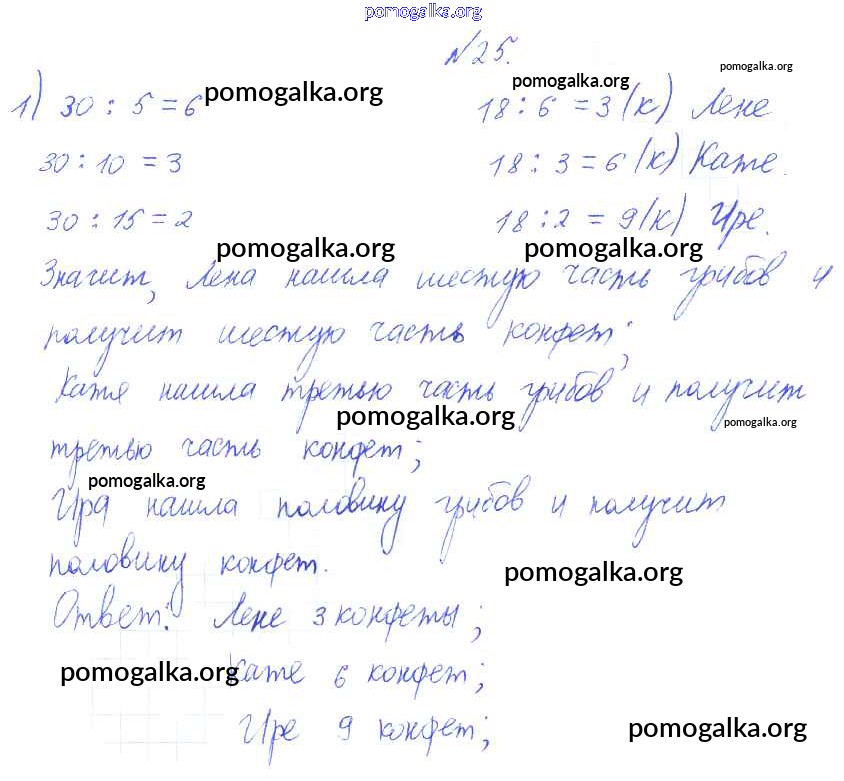 pomogalka.org
№25.
pomogalka.org
1) 30 : 5 = 6 pomogalka.org 18 : 6 = 3 (к) Лене
pomogalka.org
30 : 10 = 3 18 : 3 = 6 (к) Кате.
30 : 15 = 2 18 : 2 = 9 (к) Ире.
pomogalka.org pomogalka.org
Значит, Лена нашла шестую часть грибов и
получит шестую часть конфет;
Катя нашла третью часть грибов и получит
pomogalka.org pomogalka.org
третью часть конфет;
pomogalka.org
Ира нашла половину грибов и получит
половину конфет.
pomogalka.org
Ответ: Лене 3 конфеты;
pomogalka.org Кате 6 конфет;
Ире 9 конфет;
pomogalka.org